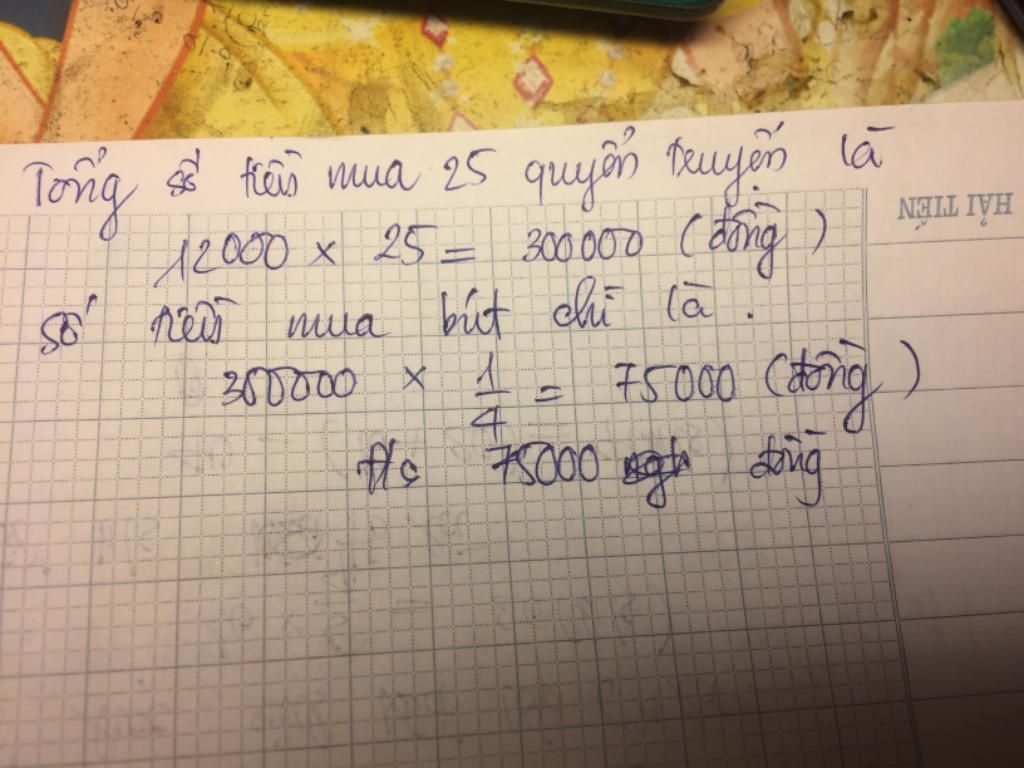 Tổng số tiền mua 25 quyển truyện là
HẢI TIẾN
12000 × 25 = 300000 (đồng)
Số tiền mua bút chì là.
300000 × 1/4 = 75000 (đồng)
đ/s 75000 đồng